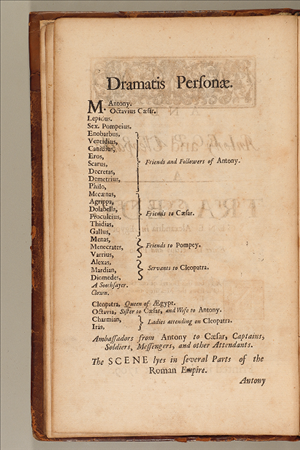 Dramatis Personæ.
M. Antony.
Octavius Cæsar.
Lepidus.
Sex. Pompeius.
Enobarbus,
Ventidius,
Canidius,
Eros,
Scarus,
Decretas,
Demetrius,
Philo,
Friends and Followers of Antony.
Mecænas,
Agrippa,
Dolabella,
Proculeius,
Thidias,
Gallus,
Friends to Cæsar.
Menas,
Menecrates,
Varrius,
Friends to Pompey.
Alexas,
Mardian,
Diomedes,
Servants to Cleopatra.
A Soothsayer.
Clown.
Cleopatra, Queen of Ægypt.
Octavia, Sister to Cæsar, and Wife to Antony.
Charmian,
Iras,
Ladies attending on Cleopatra.
Ambassadors from Antony to Cæsar, Captains,
Soldiers, Messengers, and other Attendants.
The SCENE lyes in several Parts of the
Roman Empire.
Antony